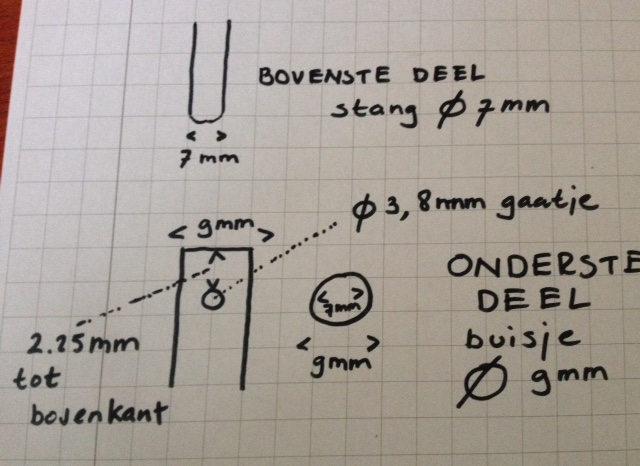 BOVENSTE DEEL
stang Ø 7mm
< >
7 mm
Ø 3,8mm gaatje
< 9mm >
ONDERSTE
DEEL
buisje
Ø 9mm
<7mm>
< >
9mm
2.25mm
tot
bovenkant